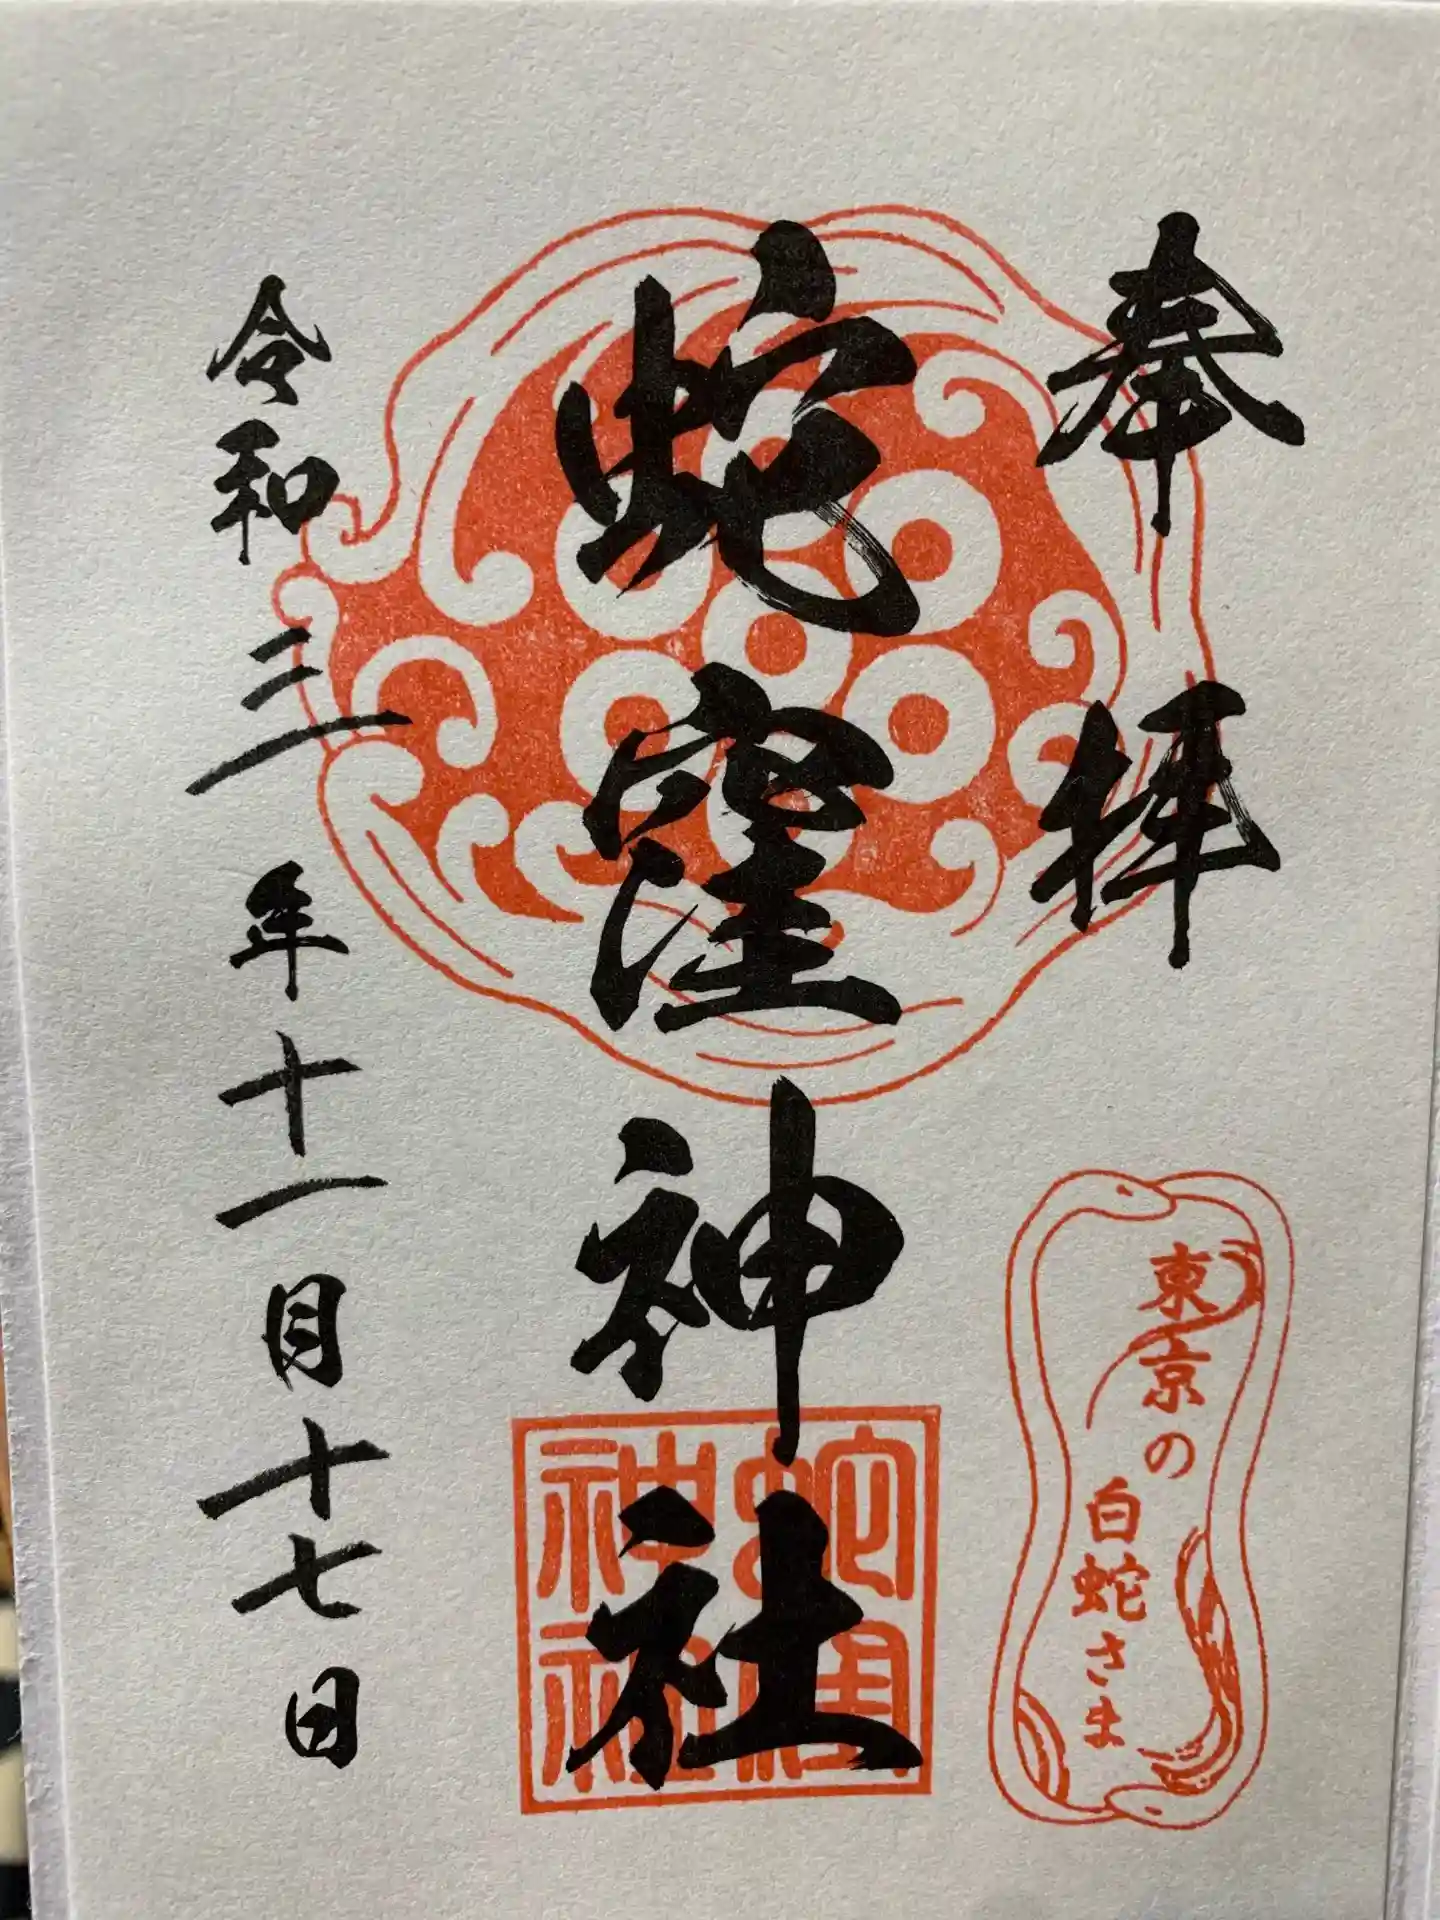 奉拝
蛇窪神社
令和三年十一月十七日
東京の
白蛇さま
蛇窪
神社